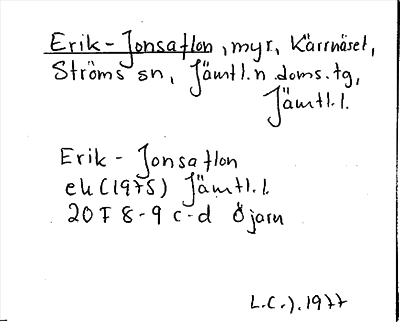 Erik-Jonsaflon, myr, Kärrnäset,
Ströms sn, Jämtl.n doms.tg,
Jämtl.l.
Erik-Jonsaflon
ek (1975) Jämtl.l.
20F 8-9 c-d Öjarn
L.C.J. 1977